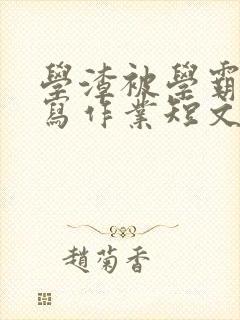 學渣被學霸
寫作業短文
趙菊香